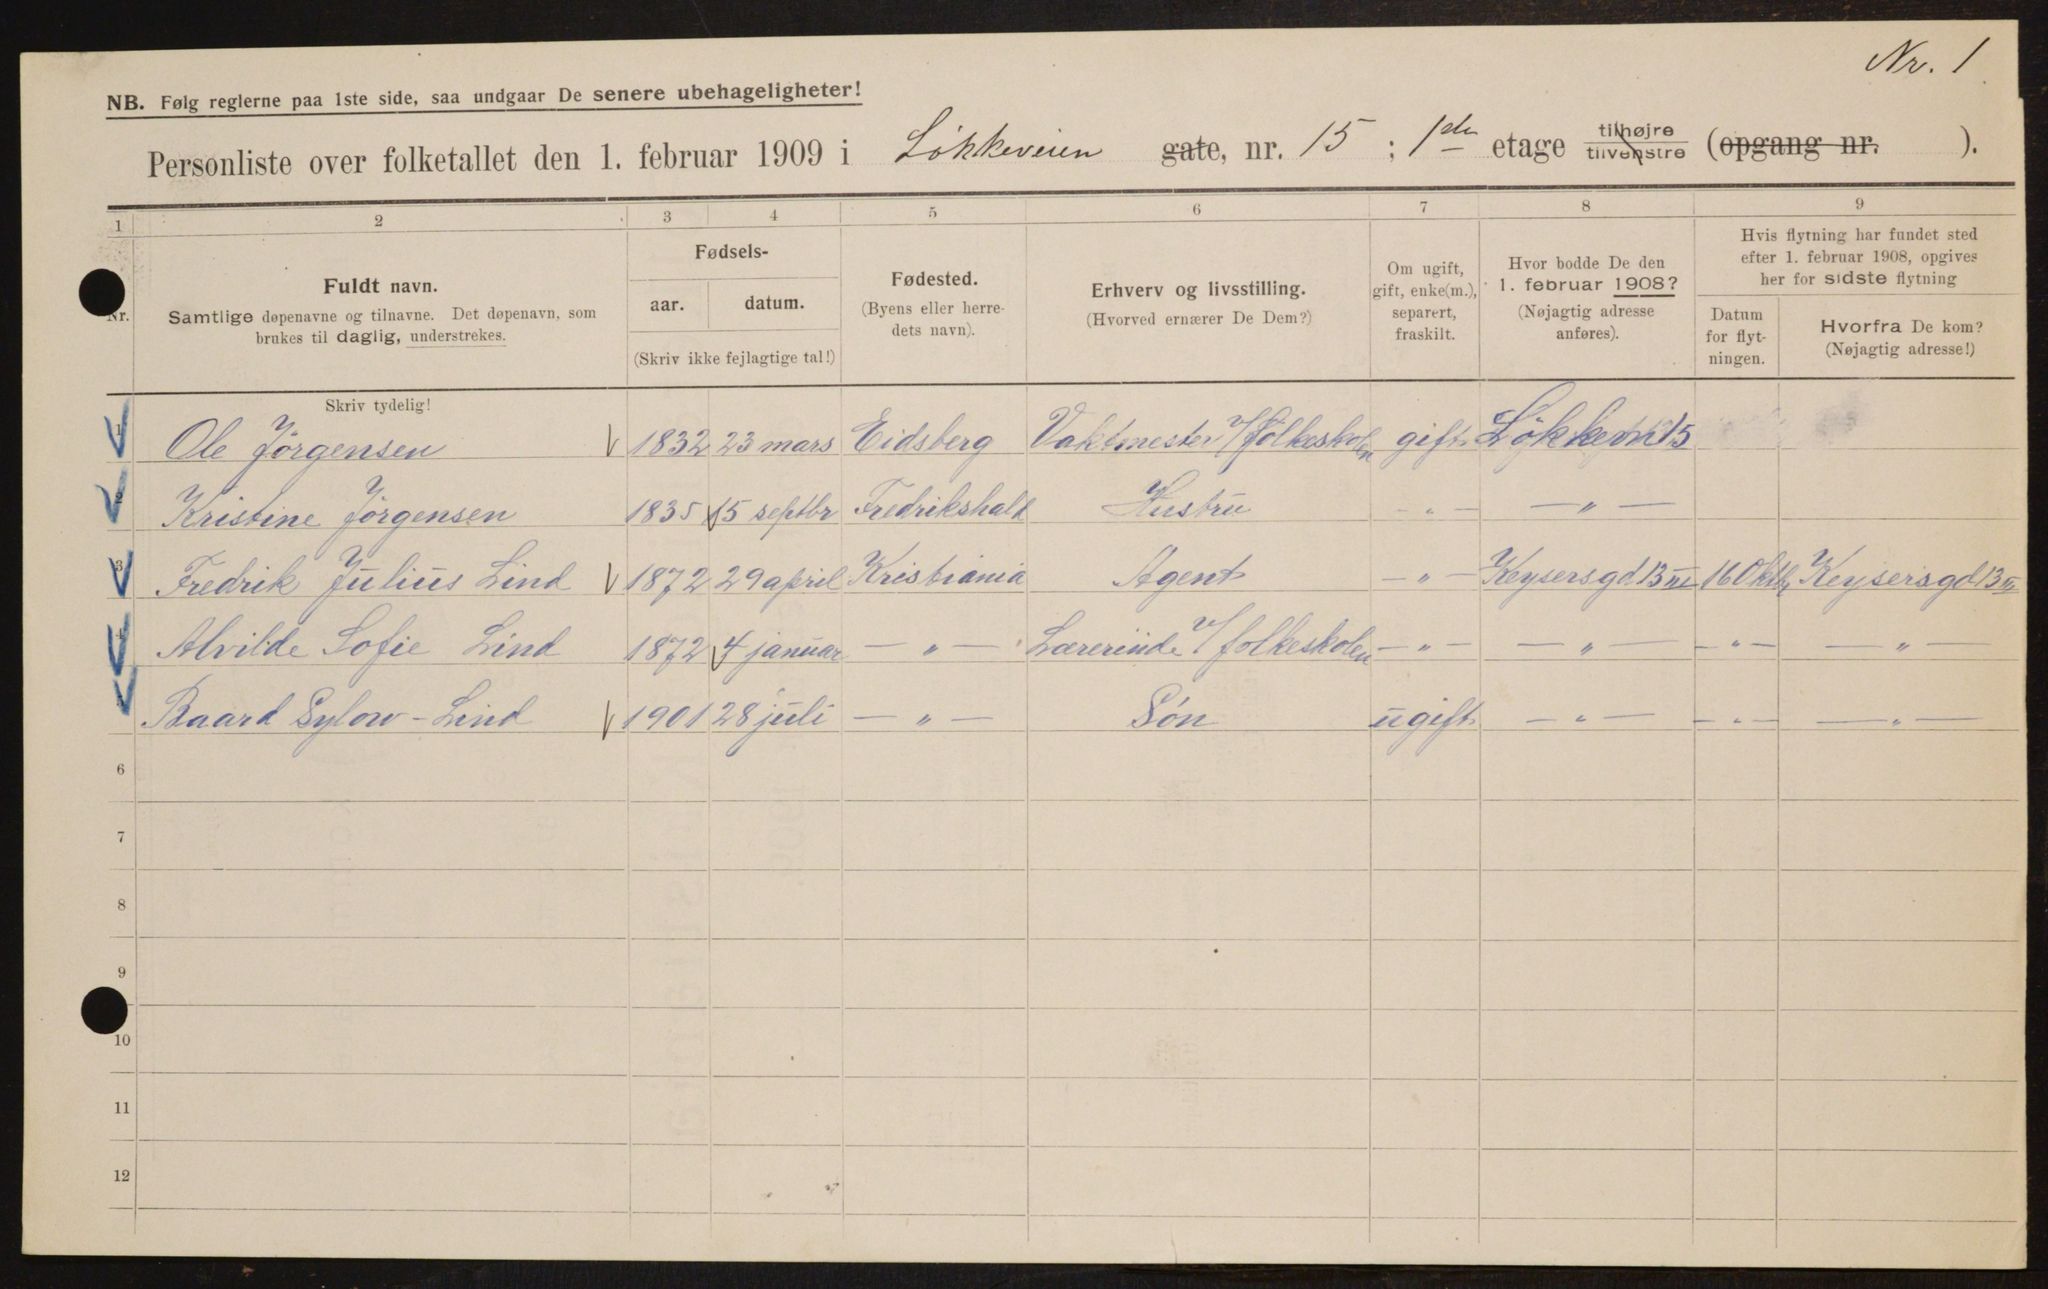 Nr. 1
NB. Følg reglerne paa 1ste side, saa undgaar De senere ubehageligheter!
Personliste over folketallet den 1. februar 1909 i Løkkeveien gate, nr. 15 ; 1ste etage tilhøjre tilvenstre (opgang nr. ).
1 2 3 4 5 6 7 8 9
Nr.
Fuldt navn.
Samtlige døpenavne og tilnavne. Det døpenavn, som
brukes til daglig, understrekes.
Fødsels-
aar. datum.
(Skriv ikke fejlagtige tal!)
Fødested.
(Byens eller herre-
dets navn).
Erhverv og livsstilling.
(Hvorved ernærer De Dem?)
Om ugift,
gift, enke(m.),
separert,
fraskilt.
Hvor bodde De den
1. februar 1908?
(Nøjagtig adresse
anføres).
Hvis flytning har fundet sted
efter 1. februar 1908, opgives
her for sidste flytning
Datum
for flyt-
ningen.
Hvorfra De kom?
(Nøjagtig adresse!)
Skriv tydelig!
1 Ole Jörgensen 1832 23 mars Eidsberg Vaktmester v/folkeskolen gift Lökkevn 15
2 Kristine Jörgensen 1835 15 septbr Fredrikshald Hustru — " — — " —
3 Fredrik Julius Lind 1872 29 april Kristiania Agent — " — Keysersgd 13 III 16 Oktb Keysersgd 13 III
4 Alvilde Sofie Lind 1872 4 januar — " — Lærerinde v/folkeskolen — " — — " — — " — — " —
5 Baard Sylow-Lind 1901 28 juli — " — Søn ugift — " — — " — — " —
6
7
8
9
10
11
12